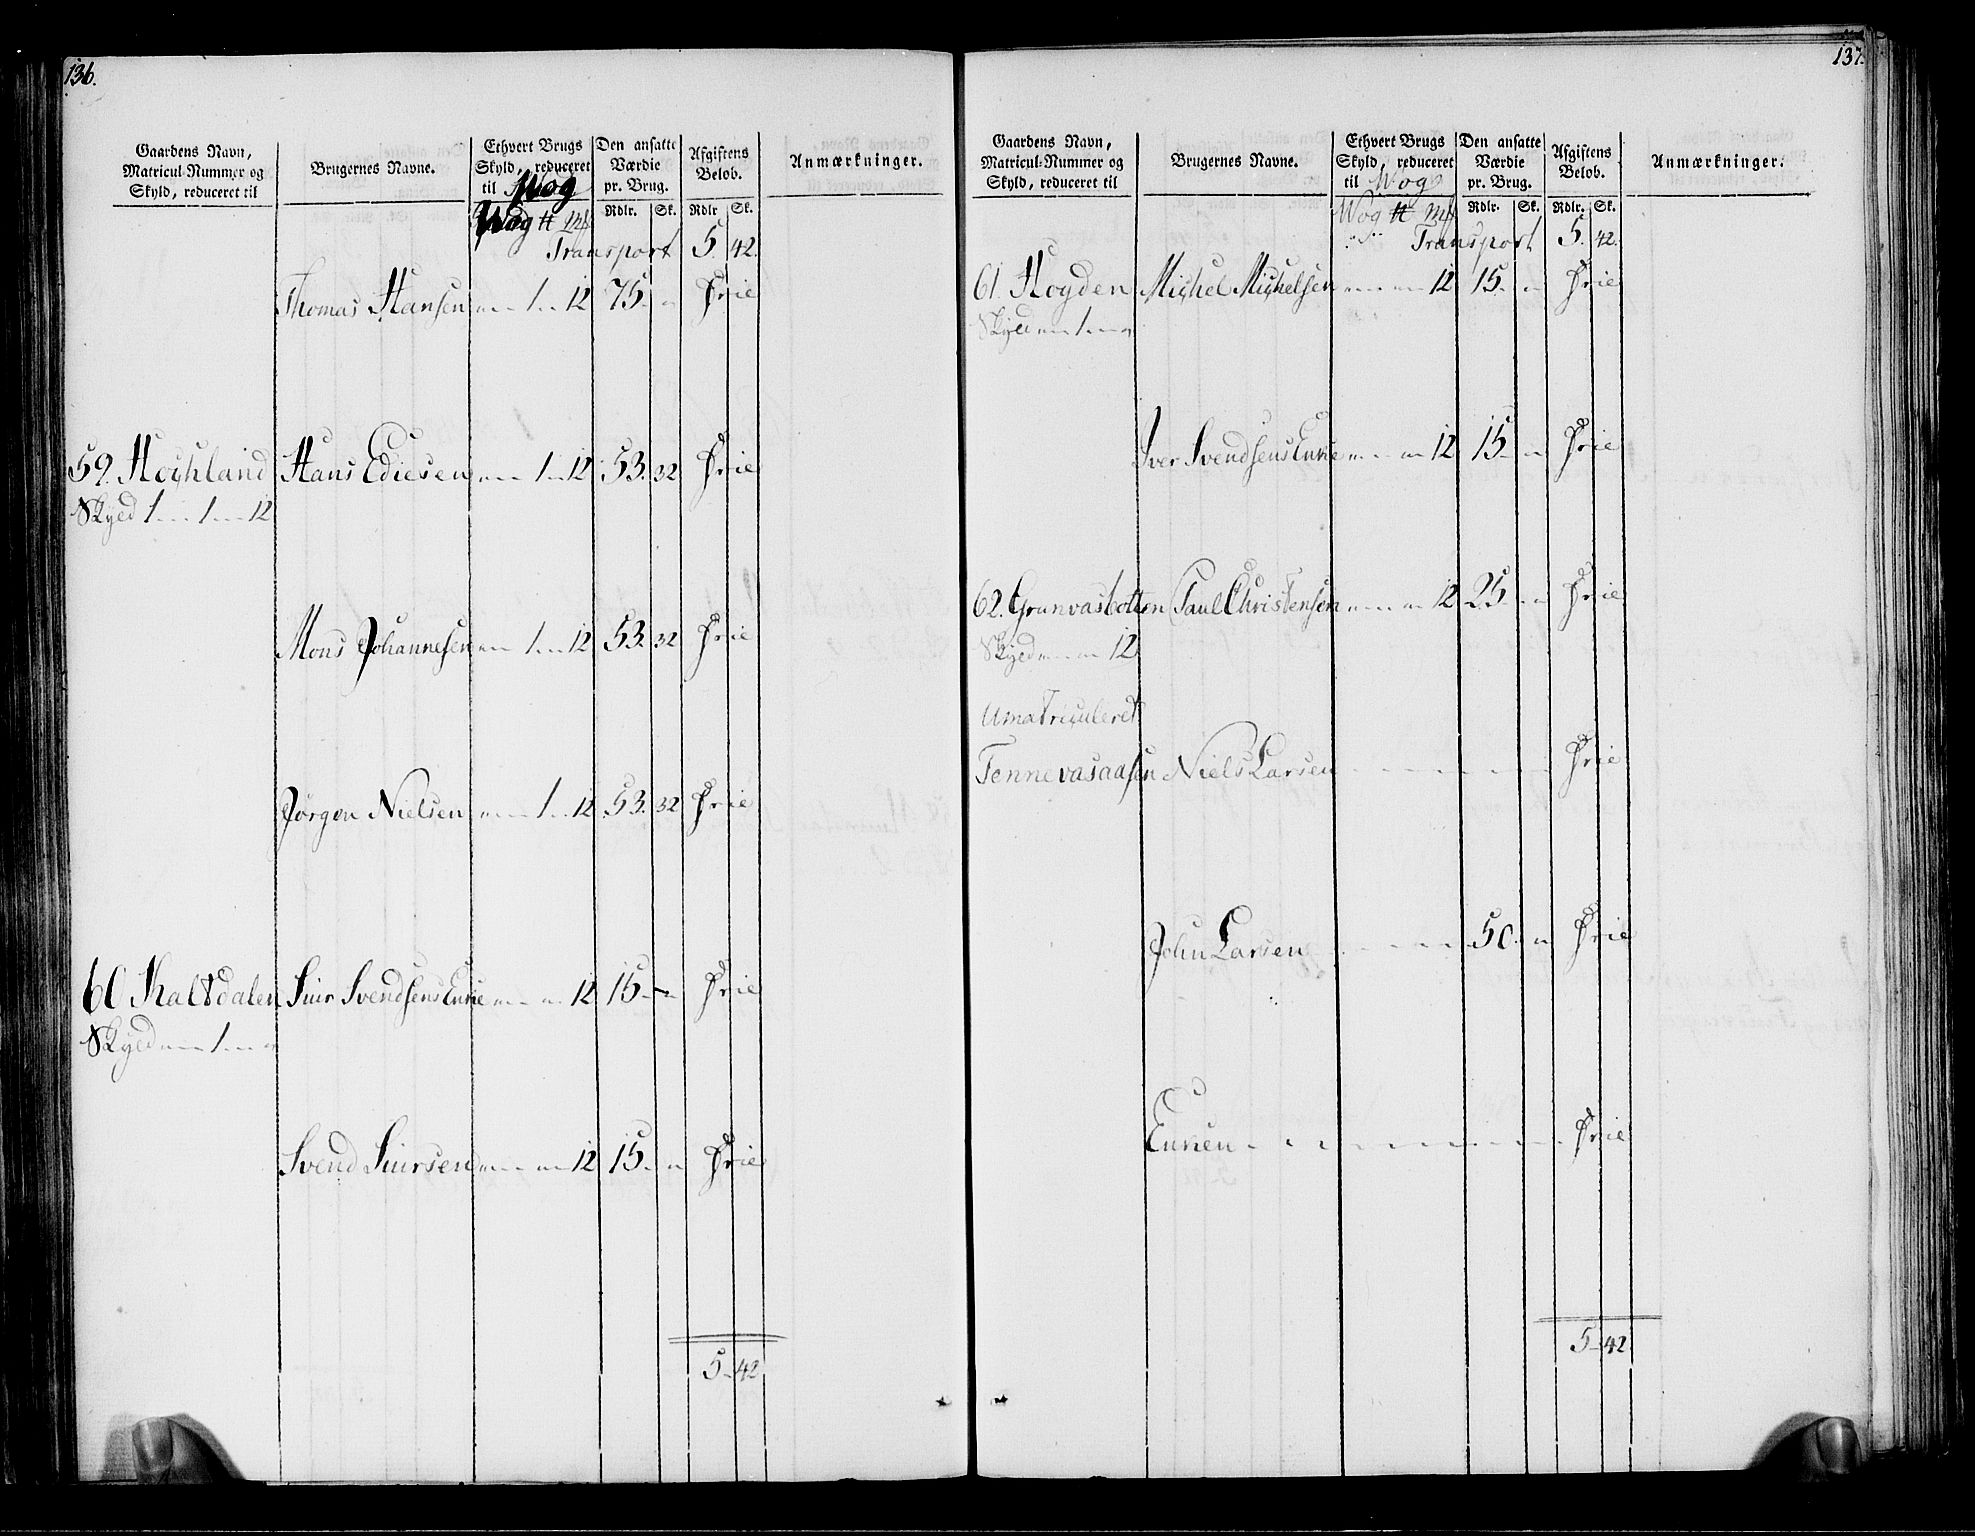 136.
Gaardens Navn, Matricul-Nummer og Skyld, reduceret til | Brugernes Navne. | Ethvert Brugs Skyld, reduceret til Wog | Den ansatte Værdie pr. Brug. | Afgiftens Beløb. | Anmærkninger.
Wog ℔ Mk | Rdlr. | Sk. | Rdlr | Sk.
Transport 5. 42.
Thomas Hansen 1 12 75 Frie
59. Hochland Hans Ediesen 1 12 53. 32 Frie
Skyld 1 1 12
Mons Johannesen 1 12 53. 32 Frie
Jørgen Nielsen 1 12 53. 32 Frie
60 Kaltdalen Siur Svendsens Enke 12 15 Frie
Skyld 1
Svend Siursen 12 15 Frie
5 42
137.
Gaardens Navn, Matricul-Nummer og Skyld, reduceret til | Brugernes Navne. | Ethvert Brugs Skyld, reduceret til Wog | Den ansatte Værdie pr. Brug. | Afgiftens Beløb. | Anmærkninger.
Wog ℔ Mk | Rdlr. | Sk. | Rdlr. | Sk.
Transport 5. 42.
61. Hogden Michel Michelsen 12 15 Frie
Skyld 1
Iver Svendsens Enke 12 15 Frie
62. Grunvasbotten Paul Christensen 12 25 Frie
Skyld 12
Umatriculeret
Tennevasaasen Niels Larsen Frie
John Larsen 50 Frie
Enken Frie
5 42